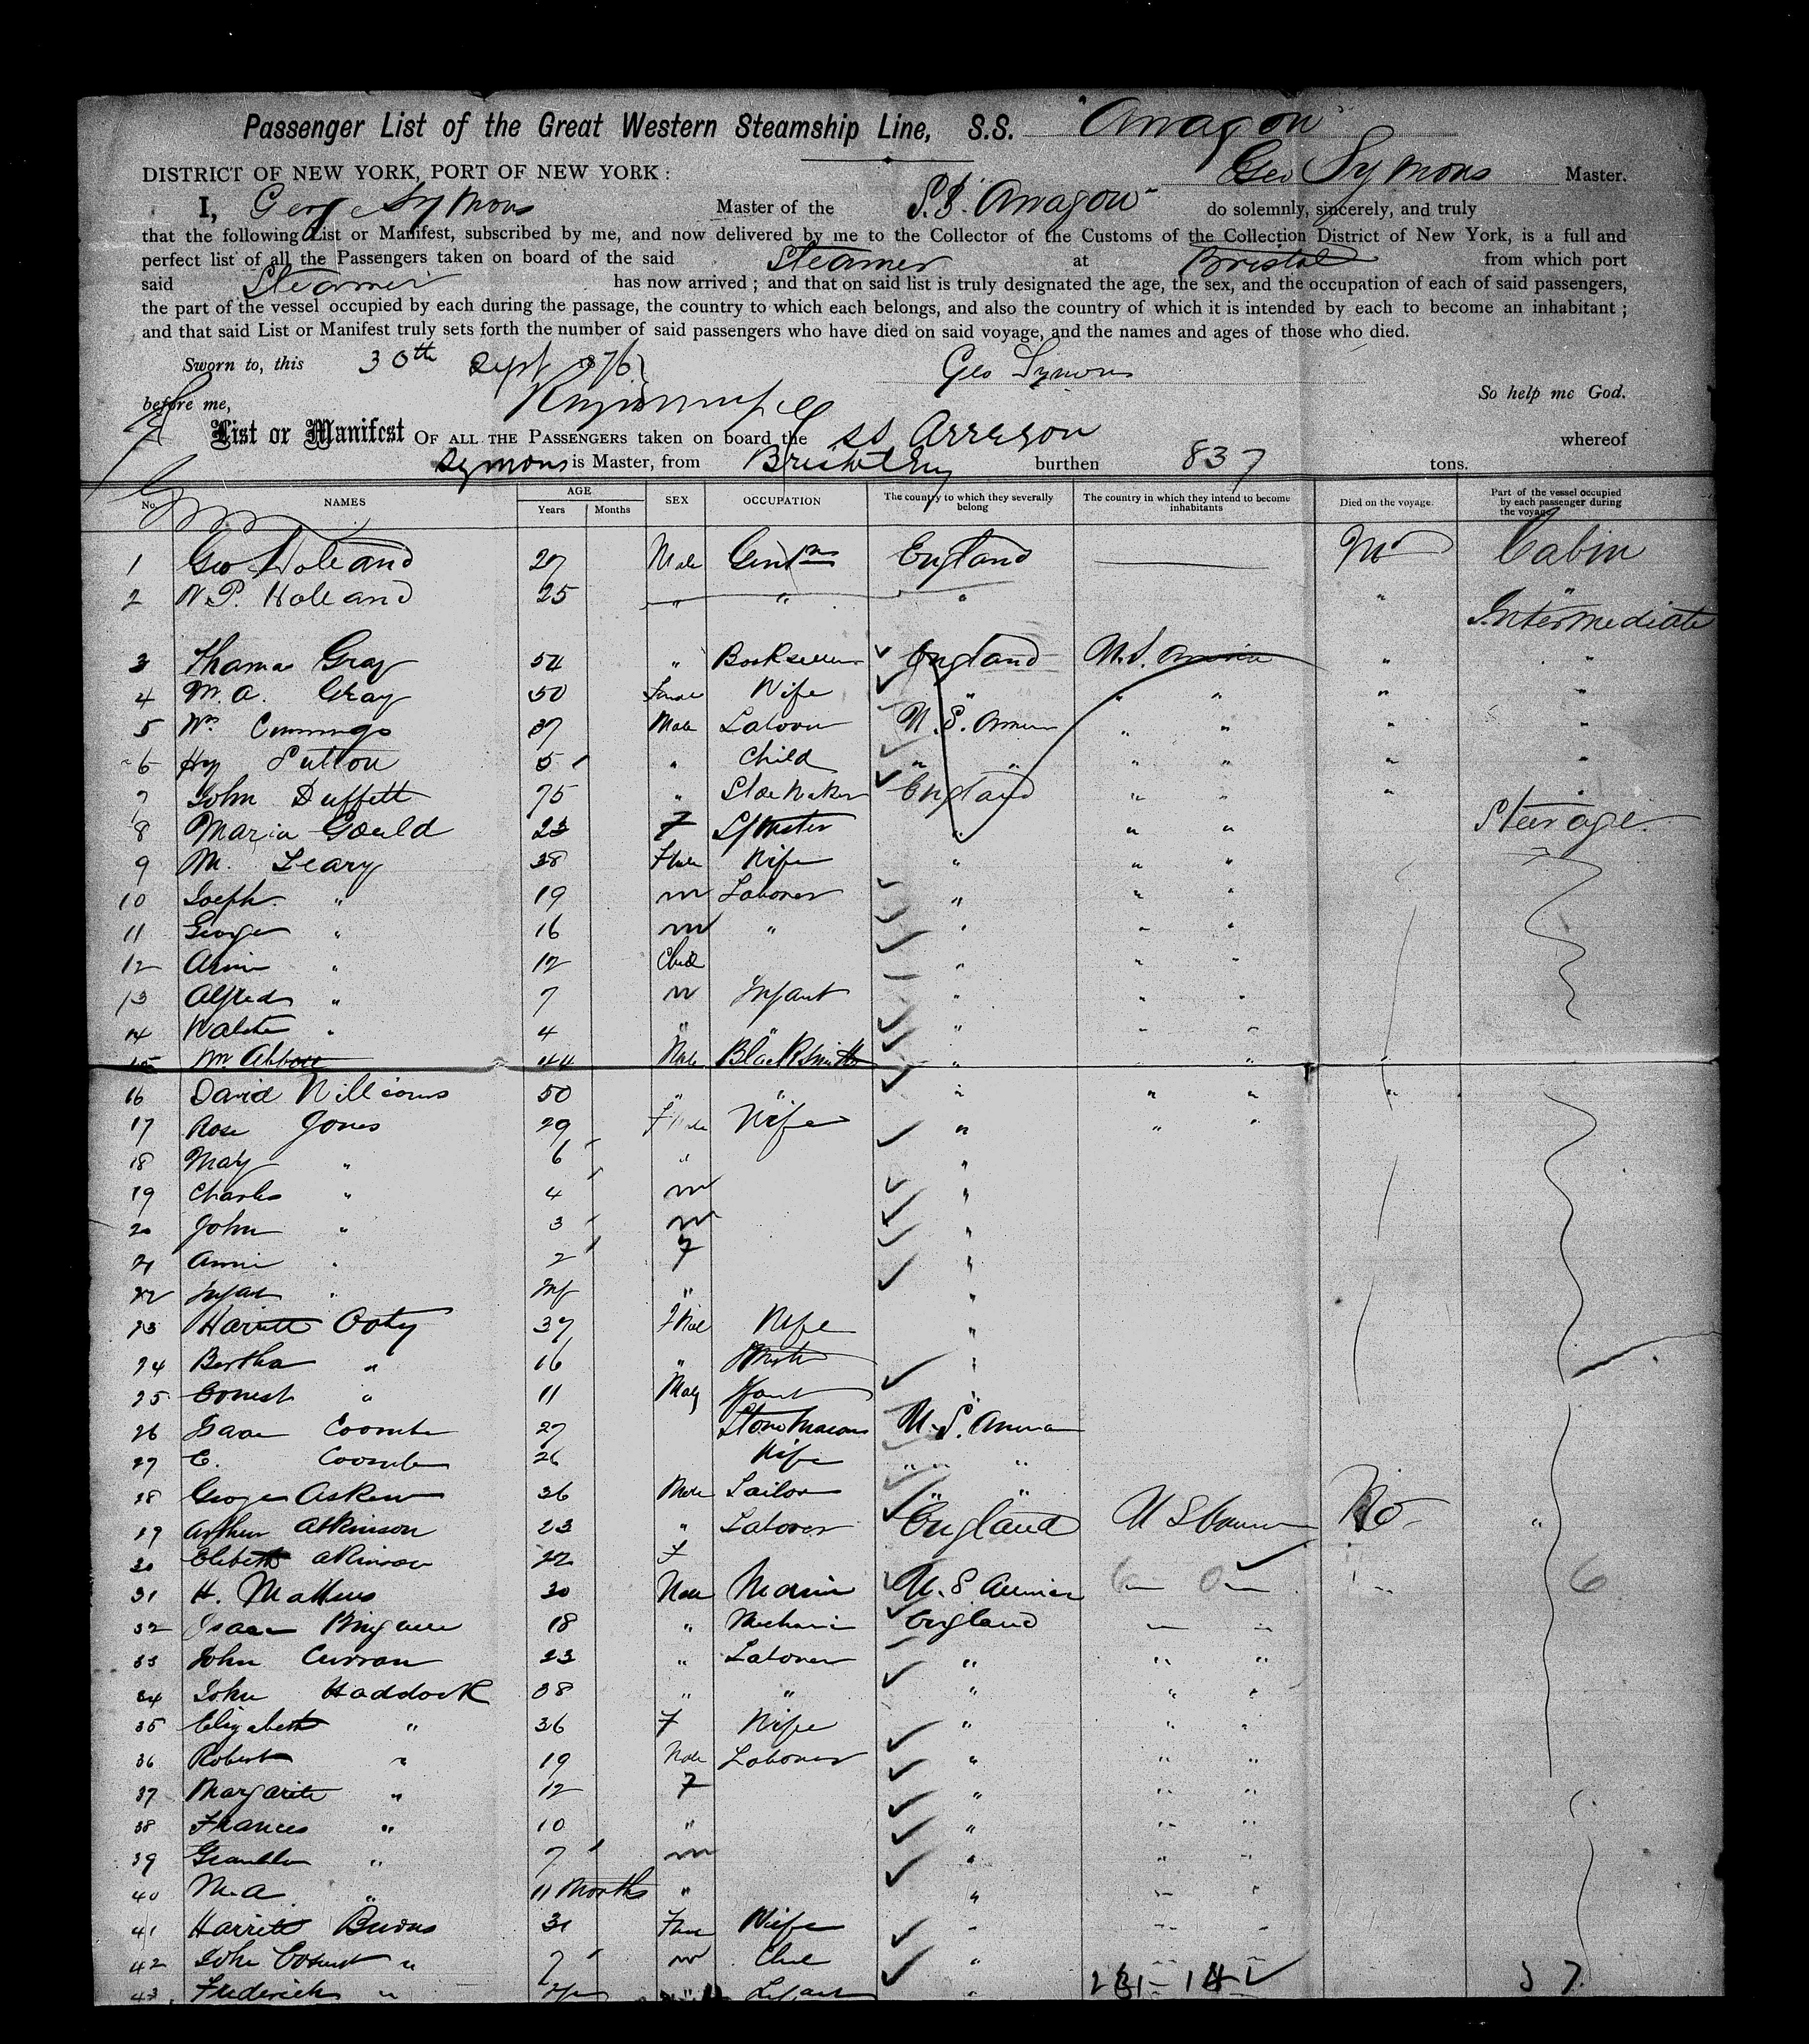 Passenger List of the Great Western Steamship Line, S.S. "Arragon"
DISTRICT OF NEW YORK, PORT OF NEW YORK : Geo Symons Master.
I, George Symons Master of the S.S. Arragon do solemnly, sincerely, and truly
that the following List or Manifest, subscribed by me, and now delivered by me to the Collector of the Customs of the Collection District of New York, is a full and
perfect list of all the Passengers taken on board of the said Steamer at Bristol from which port
said Steamer has now arrived ; and that on said list is truly designated the age, the sex, and the occupation of each of said passengers,
the part of the vessel occupied by each during the passage, the country to which each belongs, and also the country of which it is intended by each to become an inhabitant ;
and that said List or Manifest truly sets forth the number of said passengers who have died on said voyage, and the names and ages of those who died.
Sworn to, this 30th Sept 1876 Geo Symons
before me, So help me God.
List or Manifest OF ALL THE PASSENGERS taken on board the SS Arragon whereof
Symons is Master, from burthen 837 tons.
No. NAMES AGE Years Months SEX OCCUPATION The country to which they severally belong The country in which they intend to become inhabitants Died on the voyage. Part of the vessel occupied by each passenger during the voyage
1 Geo Holland 27 Male Gentn England Cabin
2 Holland 25 " " " " "
Intermediate
3 Thomas Gray 54 " Bookseller England U.S. America " "
4 M.A. Gray 50 Female Wife " " " " "
5 Wm Cummings 37 Male Laborer U.S. America " " " "
6 Hy Sutton 5 " Child " " " " " "
7 John Duffett 75 " Shoe Maker England " " " "
8 Maria Gould 23 F Spinster " " " Steerage
9 M. Leary 38 Female Wife " " "
10 Joseph " 19 m Laborer " " "
11 George " 16 m " " " "
12 Annie " 12 Child " " "
13 Alfred " 7 m Infant " " "
14 Walter " 4 " " " " "
15 Wm Abbott 44 Male Blacksmith " " " "
16 David Williams 50 " " " " " "
17 Rose Jones 29 Female Wife " " "
18 May " 6 " "
19 Charles " 4 m "
20 John " 3 m "
21 Annie " 2 F "
22 Infant " Inf " "
23 Harriett 37 Female Wife "
24 Bertha " 16 " "
25 Ernest " 11 Male "
26 Isaac Coombe 27 Stone Mason U.S. America
27 E. Coombe 26 Wife " " "
28 George Askew 36 Male Tailor " "
29 Arthur Atkinson 23 " Laborer England U S America No "
30 Atkinson 22 F
31 H. Mathews 30 Male U.S America 6
32 Isaac 18 " Mechanic England
33 John Curran 23 " Laborer " " "
34 John Haddock 38 " " " " "
35 Elizabeth " 36 F Wife " " "
36 Robert " 19 Male Laborer " " "
37 Margarite " 12 F " " "
38 Frances " 10 " " " "
39 " 7 m " " "
40 M.A " 11 Months " " " "
41 Harriett Burns 31 Female Wife "
42 John " 7 m Child "
43 Frederick " " Infant " 37